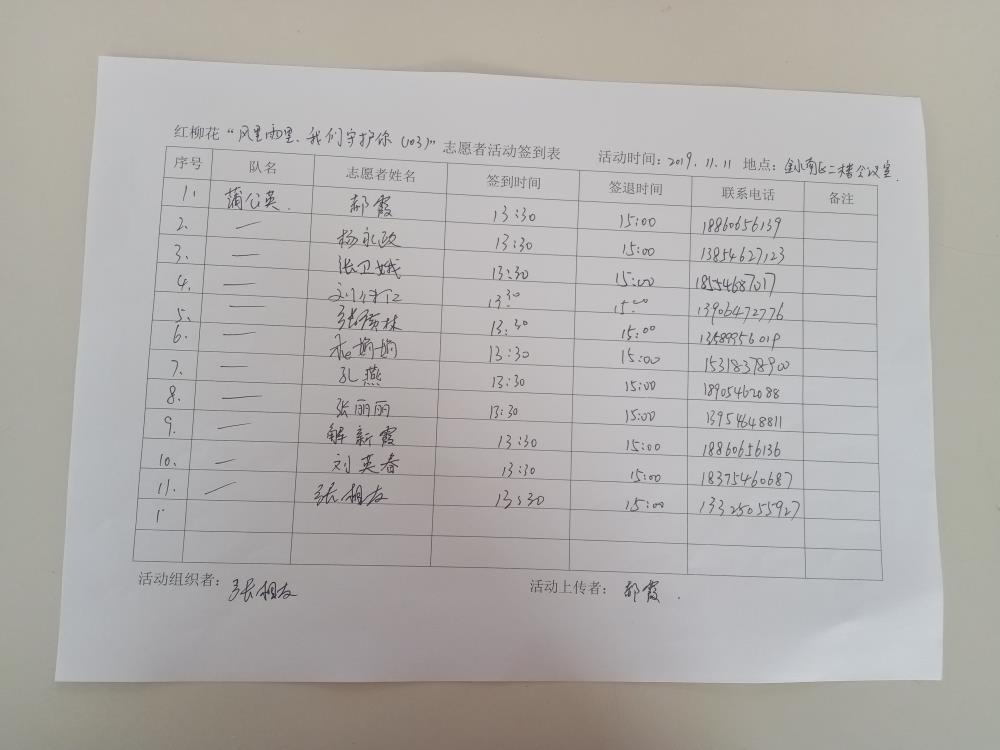 红柳花“风里雨里、我们守护你(103)”志愿者活动签到表 活动时间:2019.11.11 地点:金水南区二楼会议室.
序号 队名 志愿者姓名 签到时间 签退时间 联系电话 备注
1. 蒲公英. 郝霞 13:30 15:00 18860656139
2. — 杨永政 13:30 15:00 13854627123
3. — 张卫娥 13:30 15:00 18554687017
4. — 13:30 15:00 13906472776
5. — 13:30 15:00 13589956019
6. — 13:30 15:00 15318378900
7. — 孔燕 13:30 15:00 18905462088
8. — 张丽丽 13:30 15:00 13954648811
9. — 解新霞 13:30 15:00 18860656136
10. — 刘英春 13:30 15:00 18375460687
11. — 张相友 13:30 15:00 13325055927
1
活动组织者:张相友 活动上传者:郝霞.